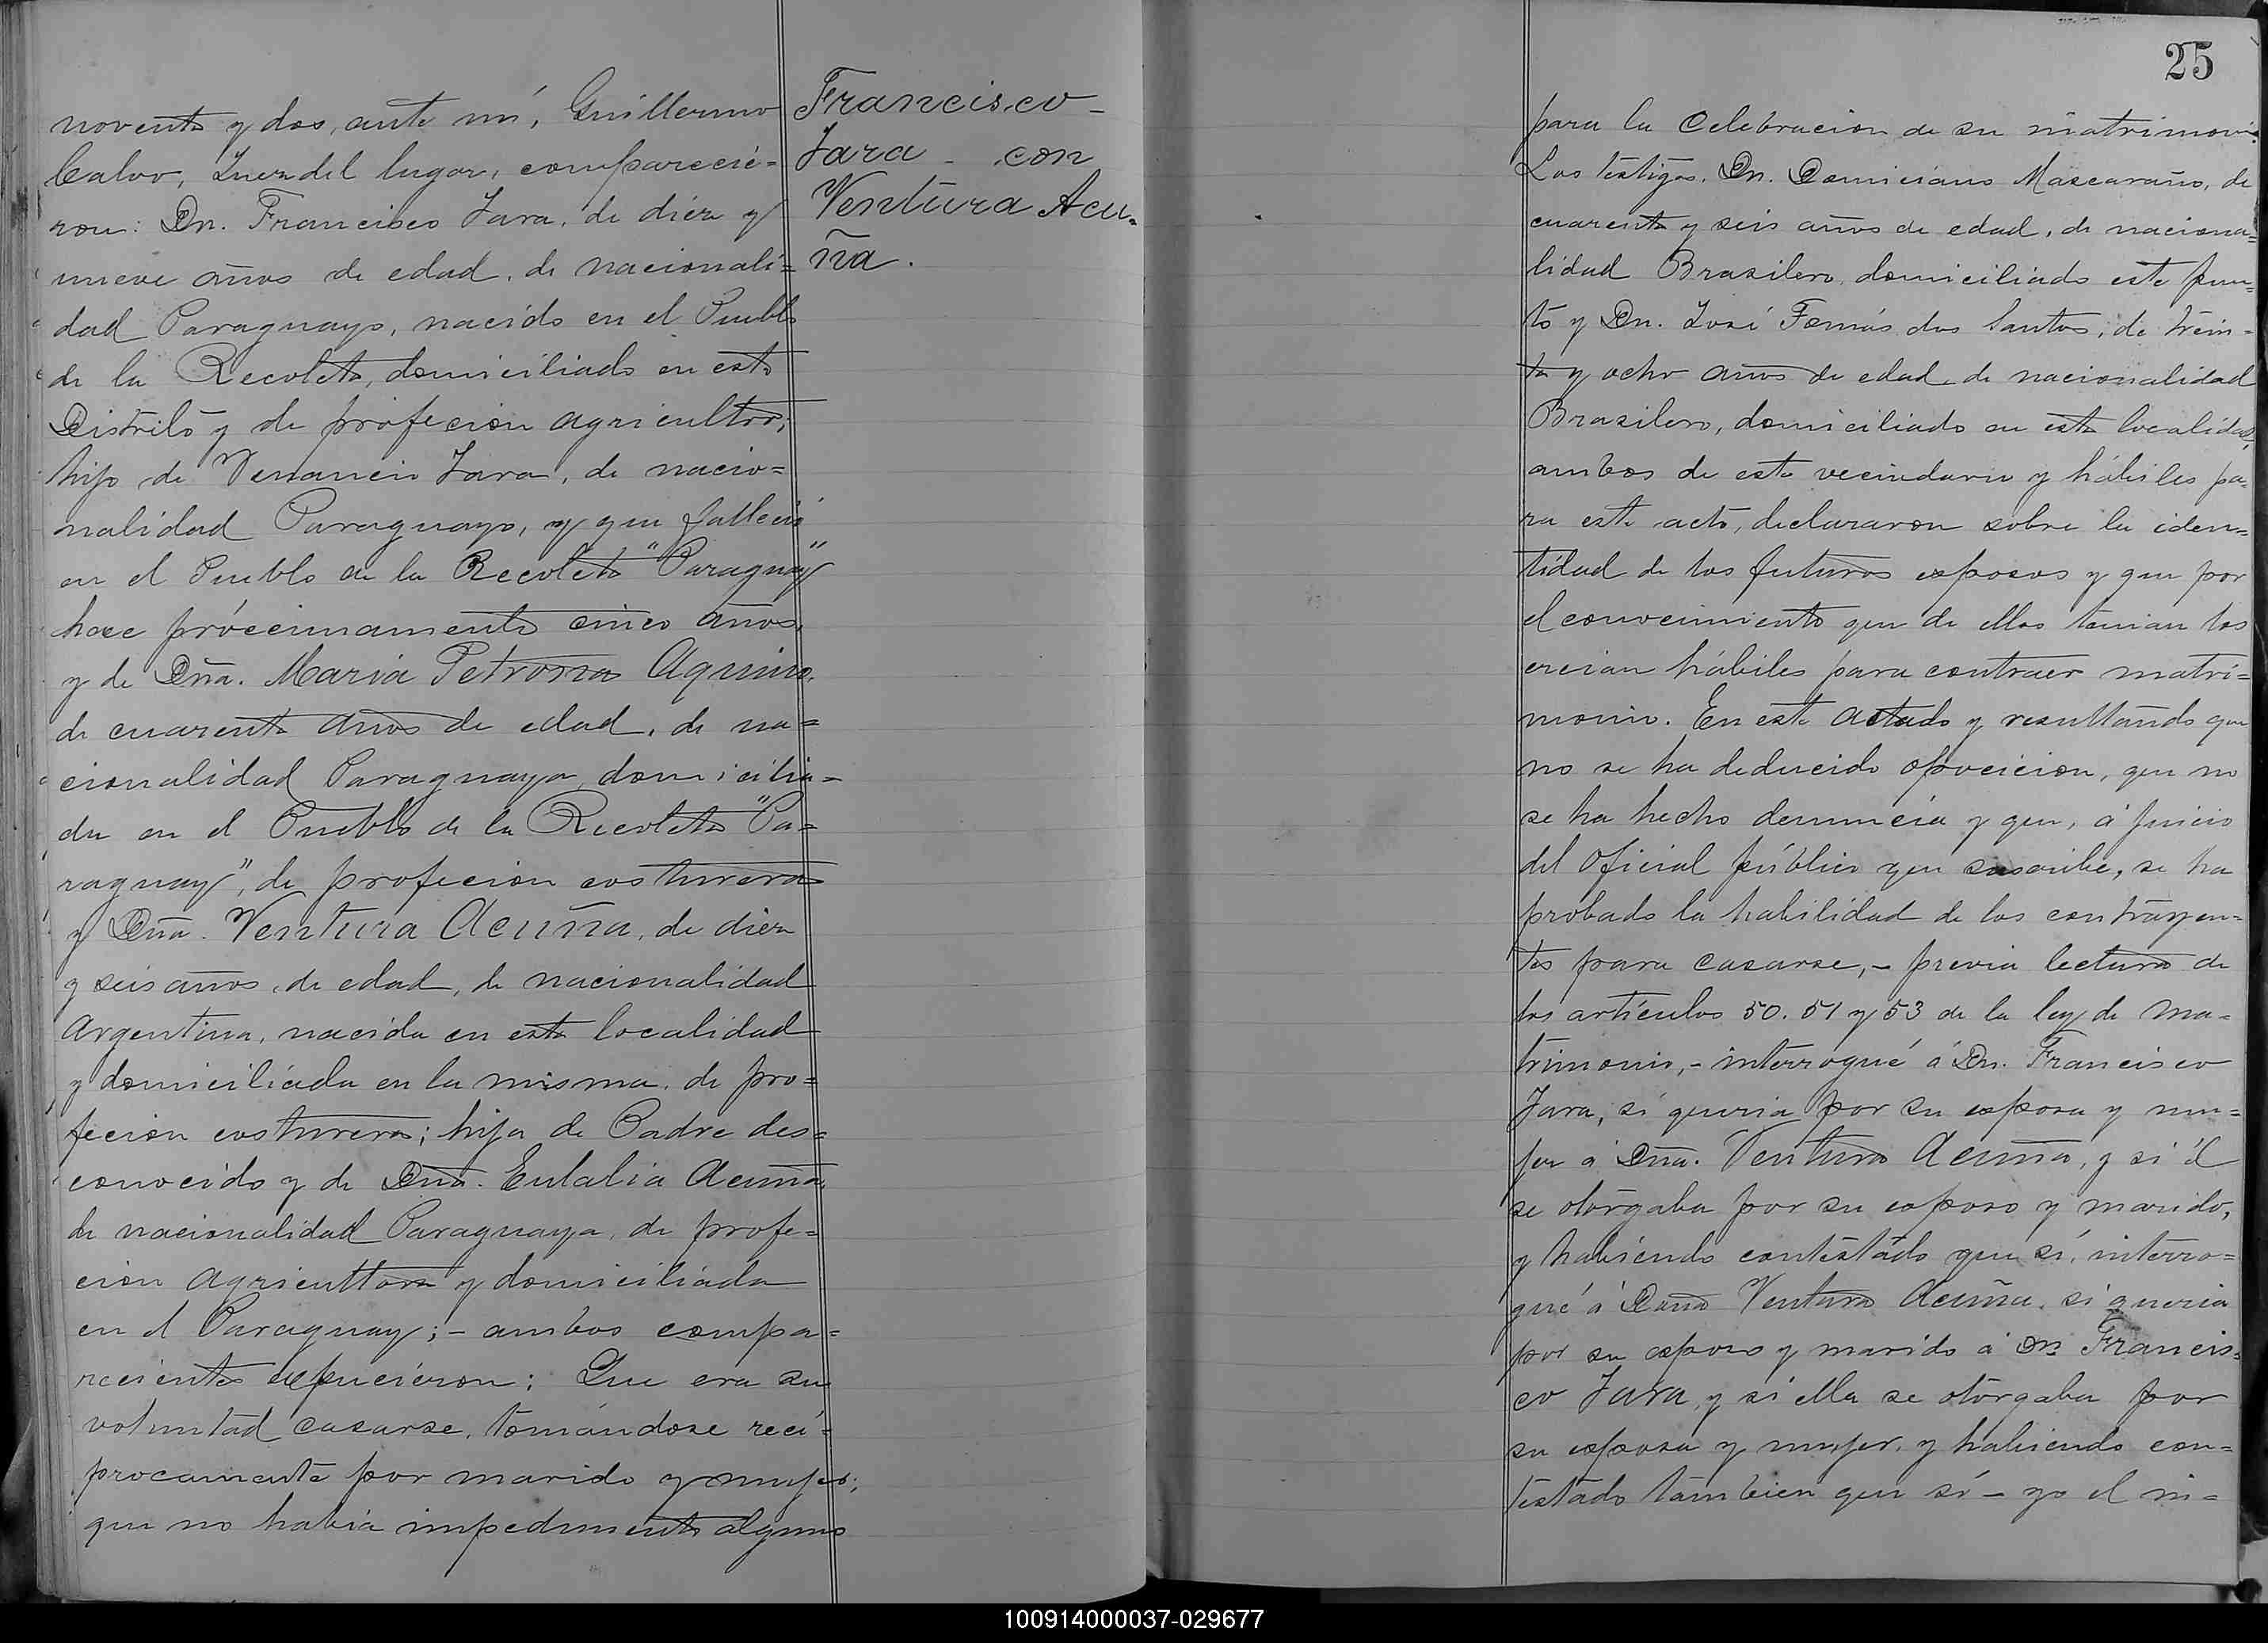 noventa y dos, ante mí, Guillermo
Calvo, Juez del lugar, comparecié=
ron: Dn. Francisco Jara, de diez y
nueve años de edad, de nacionali=
dad Paraguayo, nacido en el Pueblo
de la Recoleta, domiciliado en este
Distrito y de profecion agricultor;
hijo de Venancio Jara, de nacio=
nalidad Paraguayo, y que falleció
en el Pueblo de la Recoleta "Paraguay"
hace próccimamente cinco años,
y de Dña. Maria Petrona Aquino,
de cuarenta años de edad, de na=
cionalidad Paraguaya, domicilia=
da en el Pueblo de la Recoleta "Pa=
raguay", de profecion costurera
y Dña. Ventura Acuña, de diez
y seis años, de edad, de nacionalidad
Argentina, nacida en esta localidad
y domiciliada en la misma, de pro=
fecion costurera; hija de Padre des=
conocido y de Dña. Eulalia Acuña,
de nacionalidad Paraguaya, de profe=
cion agricultora y domiciliada
en el Paraguay;- ambos compa=
recientes expuciéron: Que era su
voluntad casarse, tomándose recí=
procamente por marido y mujer;
que no habia impedimento alguno
Francisco-
Jara - con
Ventura Acu=
ña.
25
para la Celebracion de su matrimonio.
Los testigos, Dn. Domiciano Mascaraño, de
cuarenta y seis años de edad, de naciona=
lidad Brasilero, domiciliado este pun=
to y Dn. José Tomás dos Santos, de trein=
ta y ocho años de edad, de nacionalidad
Brasilero, domiciliado en esta localidad,
ambos de este vecindario y hábiles pa=
ra este acto, declararon sobre la iden=
tidad de los futuros esposos y que por
el conocimiento que de ellos tenian los
creian hábiles para contraer matri=
monio. En este actado y resultando que
no se ha deducido opocicion, que no
se ha hecho denuncia y que, á juicio
del oficial público que suscribe, se ha
probado la habilidad de los contrayen=
tes para casarse,- previa lectura de
los artículos 50. 51 y 53 de la ley de ma=
trimonio,- interrogué á Dn. Francisco
Jara, si queria por su esposa y mu=
jer á Dña. Ventura Acuña, y si él
se otorgaba por su esposo y marido,
y habiendo contestado que sí, interro=
gué á Doña Ventura Acuña, si queria
por su esposo y marido á Dn Francis=
co Jara, y si ella se otorgaba por
su esposa y mujer, y habiendo con=
testado tambien que sí - yo el in=
100914000037-029677